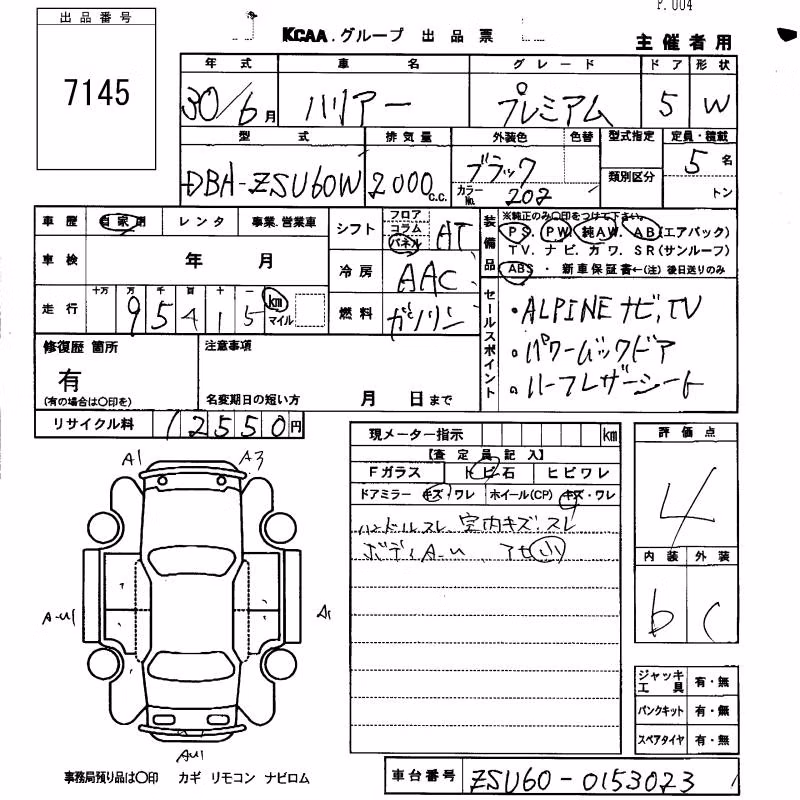 P.004
出品番号
7145
KCAA.グループ 出品票
主催者用
年式 車名 グレード ドア 形状
30/6月 ハリアー プレミアム 5 W
型式 排気量 外装色 色替 型式指定 定員・積載
DBA-ZSU60W 2000c.c. ブラック カラーNo. 202 類別区分 5名 トン
車歴 自家用 レンタ 事業.営業車
車検 年 月
走行 十万 万 千 百 十 一
95415 km マイル
シフト フロア コラム パネル AT
冷房 AAC
燃料 ガソリン
装備品 ※純正のみ〇印をつけて下さい。
PS. PW. 純AW. AB(エアバック)
TV. ナビ. カワ. SR(サンルーフ)
ABS ・ 新車保証書←(注)後日送りのみ
セールスポイント
・ALPINEナビ、TV
・パワーバックドア
・ハーフレザーシート
修復歴 箇所
有
(有の場合は〇印を)
注意事項
名変期日の短い方 月 日まで
リサイクル料 12550円
現メーター指示 km
【査定員記入】
Fガラス トビ石 ヒビワレ
ドアミラー キズ・ワレ ホイール(CP) キズ・ワレ
ハンドルスレ、室内キズ、スレ
ボディA-U、アセ小
評価点
4
内装 外装
b C
ジャッキ工具 有・無
パンクキット 有・無
スペアタイヤ 有・無
A1 A3
A-U1 A1
AU1
事務局預り品は〇印 カギ リモコン ナビロム
車台番号 ZSU60-0153023